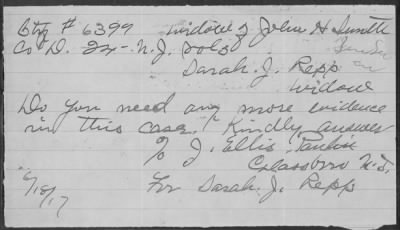 Ctf # 6399 widow of John H Smith
Co D. 24- N.J. Vols
Sarah. J. Repp
widow
Do you need any more evidence
in this case. Kindly answer
% J. Ellis
Glassboro N.J.
6/18/17 For Sarah. J. Repp